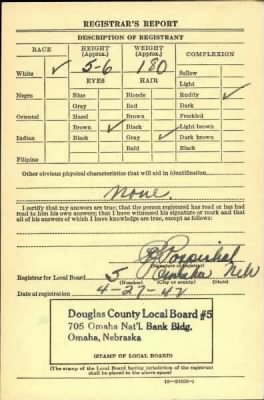 REGISTRAR'S REPORT
DESCRIPTION OF REGISTRANT
RACE HEIGHT (Approx.) WEIGHT (Approx.) COMPLEXION
White ✓ 5-6 180 Sallow
EYES HAIR Light
Negro Blue Blonde Ruddy ✓
Gray Red Dark
Oriental Hazel Brown Freckled
Brown ✓ Black Light brown
Indian Black Gray ✓ Dark brown
Bald Black
Filipino
Other obvious physical characteristics that will aid in identification
None.
I certify that my answers are true; that the person registered has read or has had
read to him his own answers; that I have witnessed his signature or mark and that
all of his answers of which I have knowledge are true, except as follows:
Registrar for Local Board 5 Omaha Neb
(Number) (City or county) (State)
Date of registration 4-27-42
Douglas County Local Board #5
705 Omaha Nat'l. Bank Bldg.
Omaha, Nebraska
(STAMP OF LOCAL BOARD)
(The stamp of the Local Board having jurisdiction of the registrant
shall be placed in the above space)